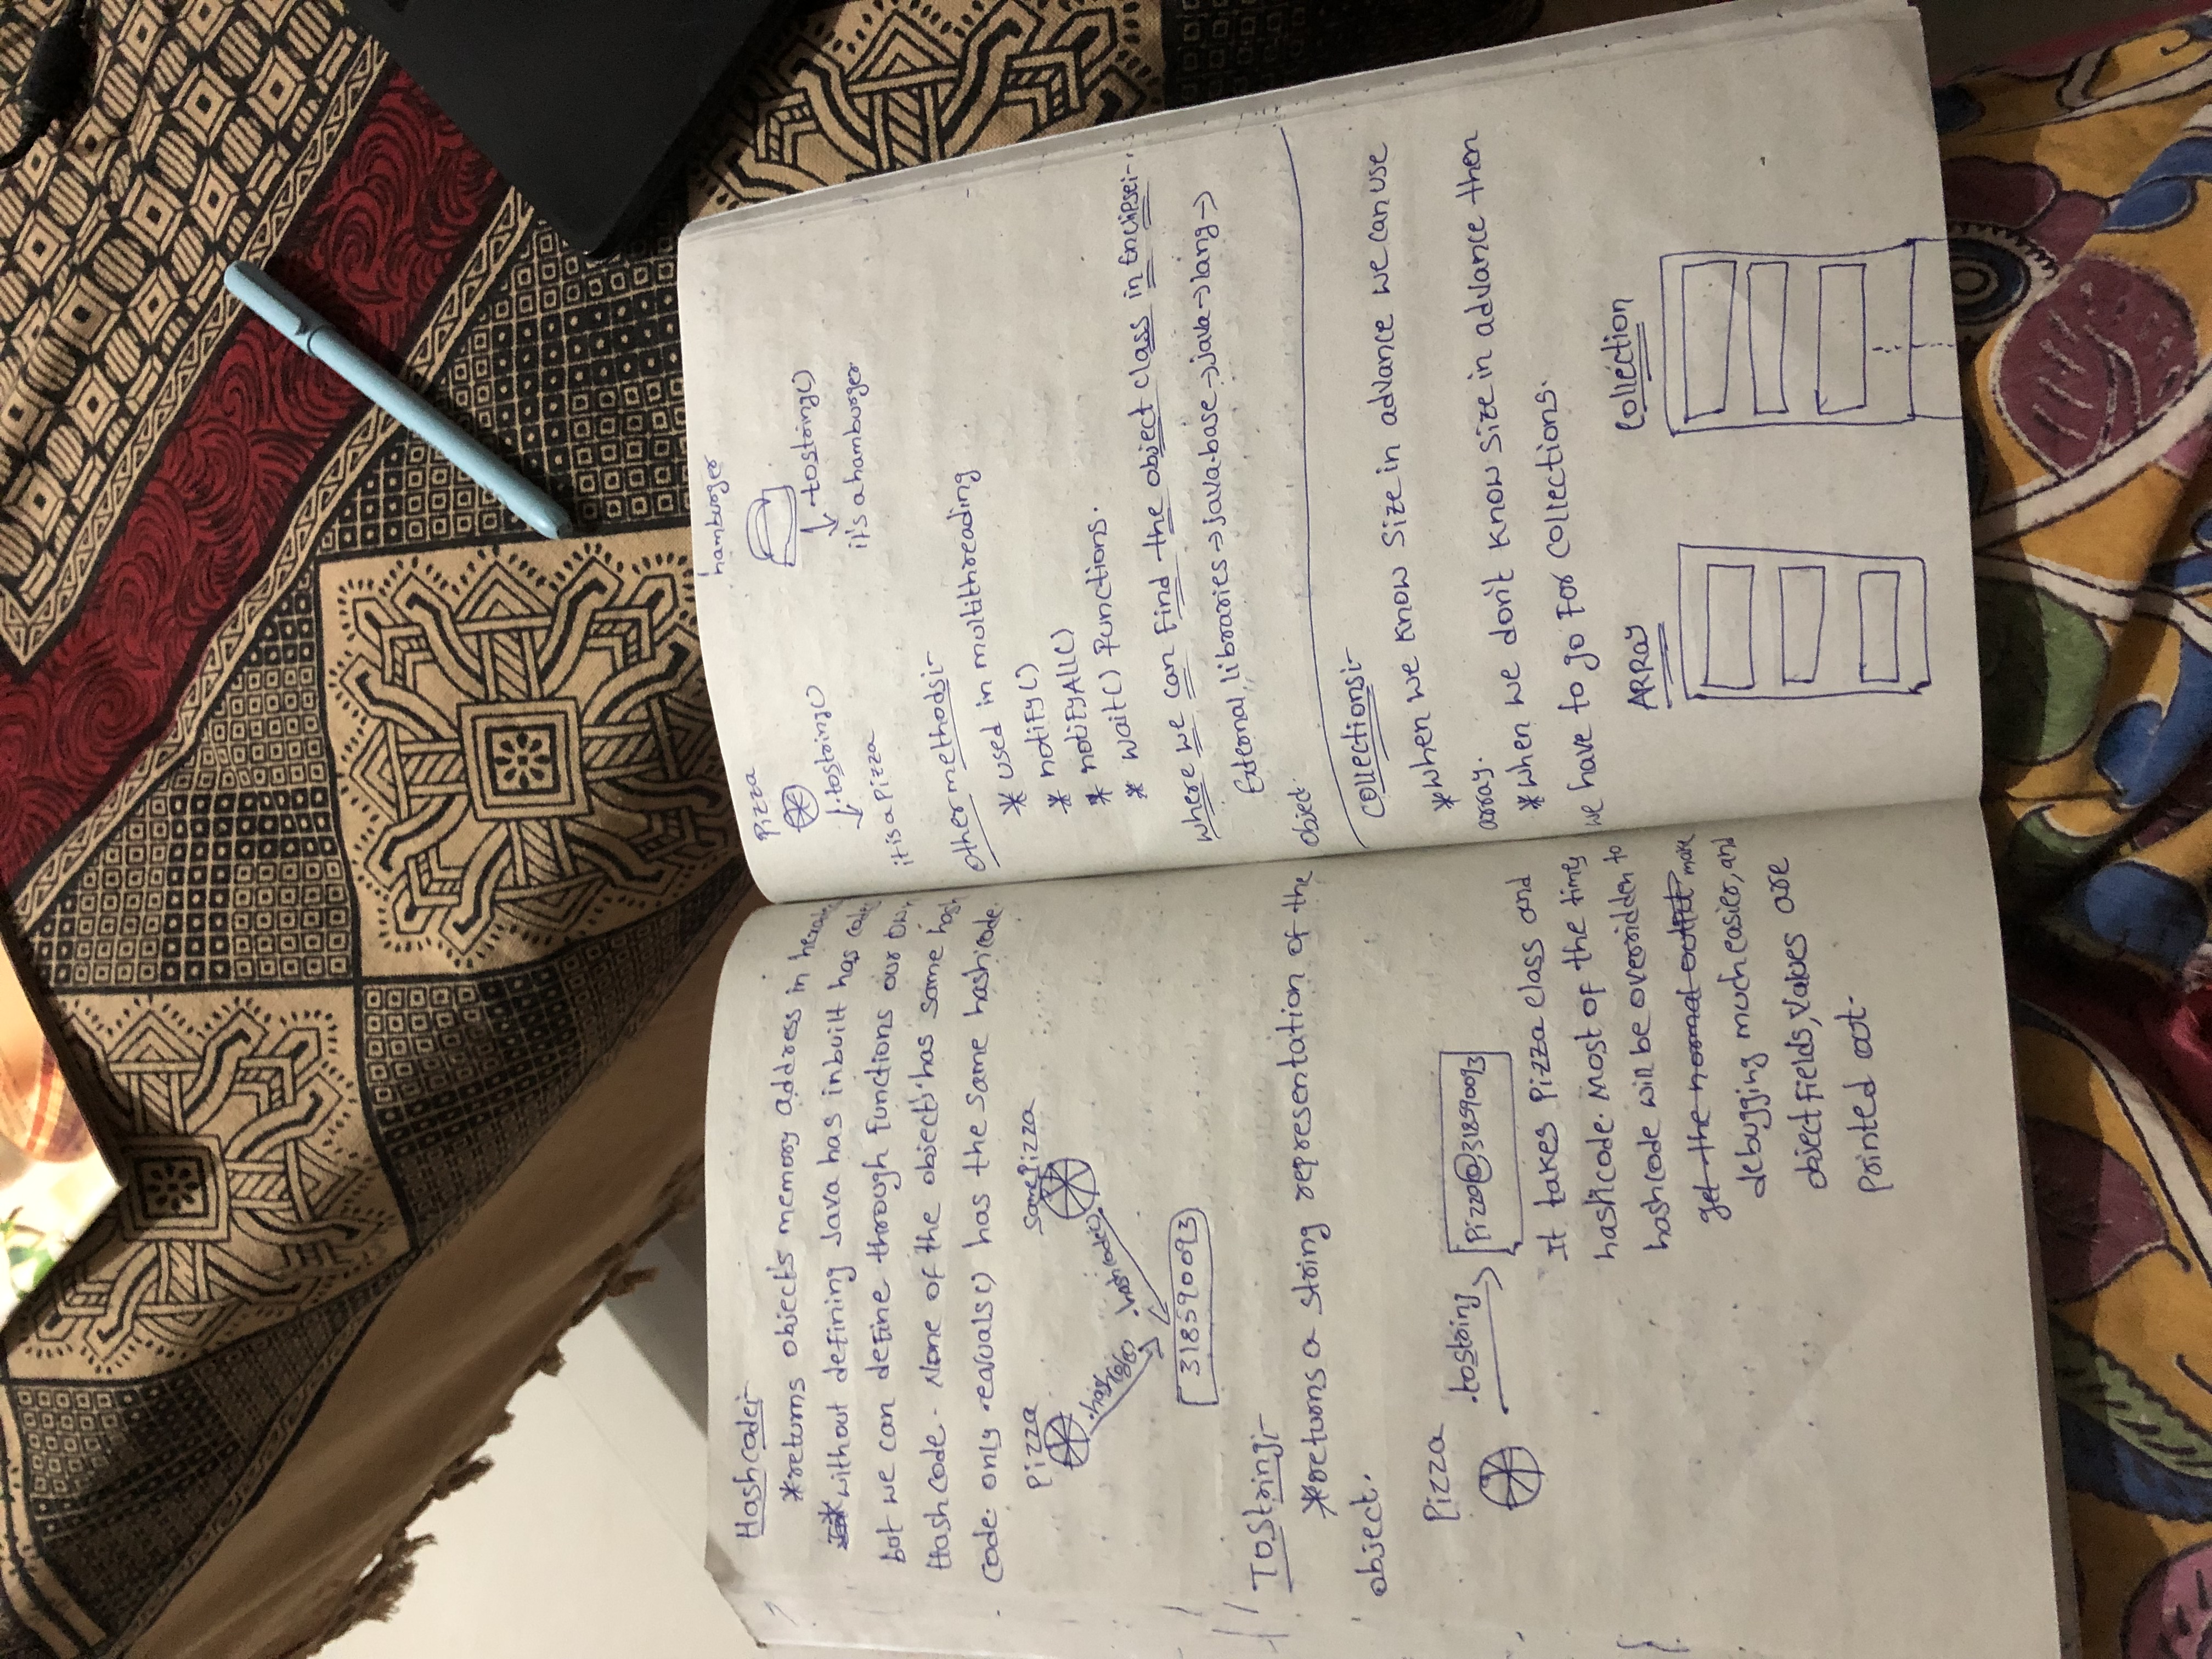 Hashcode:-
*returns object's memory address in
* without defining Java has inbuilt has
but we can define through functions our own
Hashcode. None of the object's has same hash
code. only equals() has the same hashcode.
Pizza
Same Pizza
.hashcode()
.hashcode()
318590093
ToString:-
*returns a string representation of the
object.
Pizza
.tostring
Pizza@318590093
It takes Pizza class and
hashcode. Most of the times
hashcode will be overridden to
get the normal output make
debugging much easier, and
object fields, values are
printed out.
Pizza
hamburger
.tostring()
.tostring()
it is a Pizza
it's a hamburger
other methods:-
* used in multithreading
* notify()
* notifyAll()
* wait() functions.
where we can find the object class in Enclipse:-
External libraries → java.base → java → lang →
object.
Collections:-
*when we know size in advance we can use
array.
*when we don't know size in advance then
we have to go for collections.
ARRay
Collection